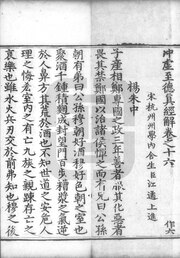 沖虛至德真經解卷之十六 作六
宋杭州州學內舍生臣江遹上進
楊朱中
子產相鄭專國之政三年善者服其化惡者
畏其禁鄭國以治諸侯憚之而有兄曰公孫
朝有弟曰公孫穆朝好酒穆好色朝之室也
聚酒千鍾積麴成封望門百步糟漿之氣逆
於人鼻方其荒於酒也不知世道之安危人
理之悔吝室內之有亡九族之親踈存亡之
哀樂也雖水火兵刃交於前弗知也穆之後